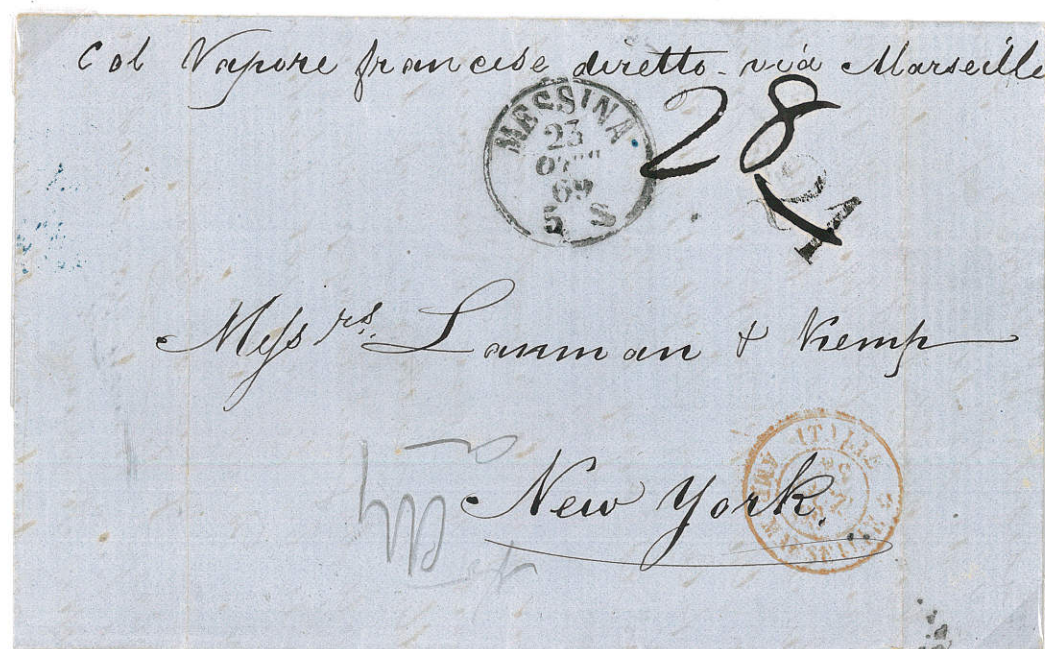 Col Vapore francese diretto via Marseille
MESSINA
23
OTT
69
5 S
28
Messrs. Lanman & Kemp
New York.
ITALIE
AMB. MARSEILLE